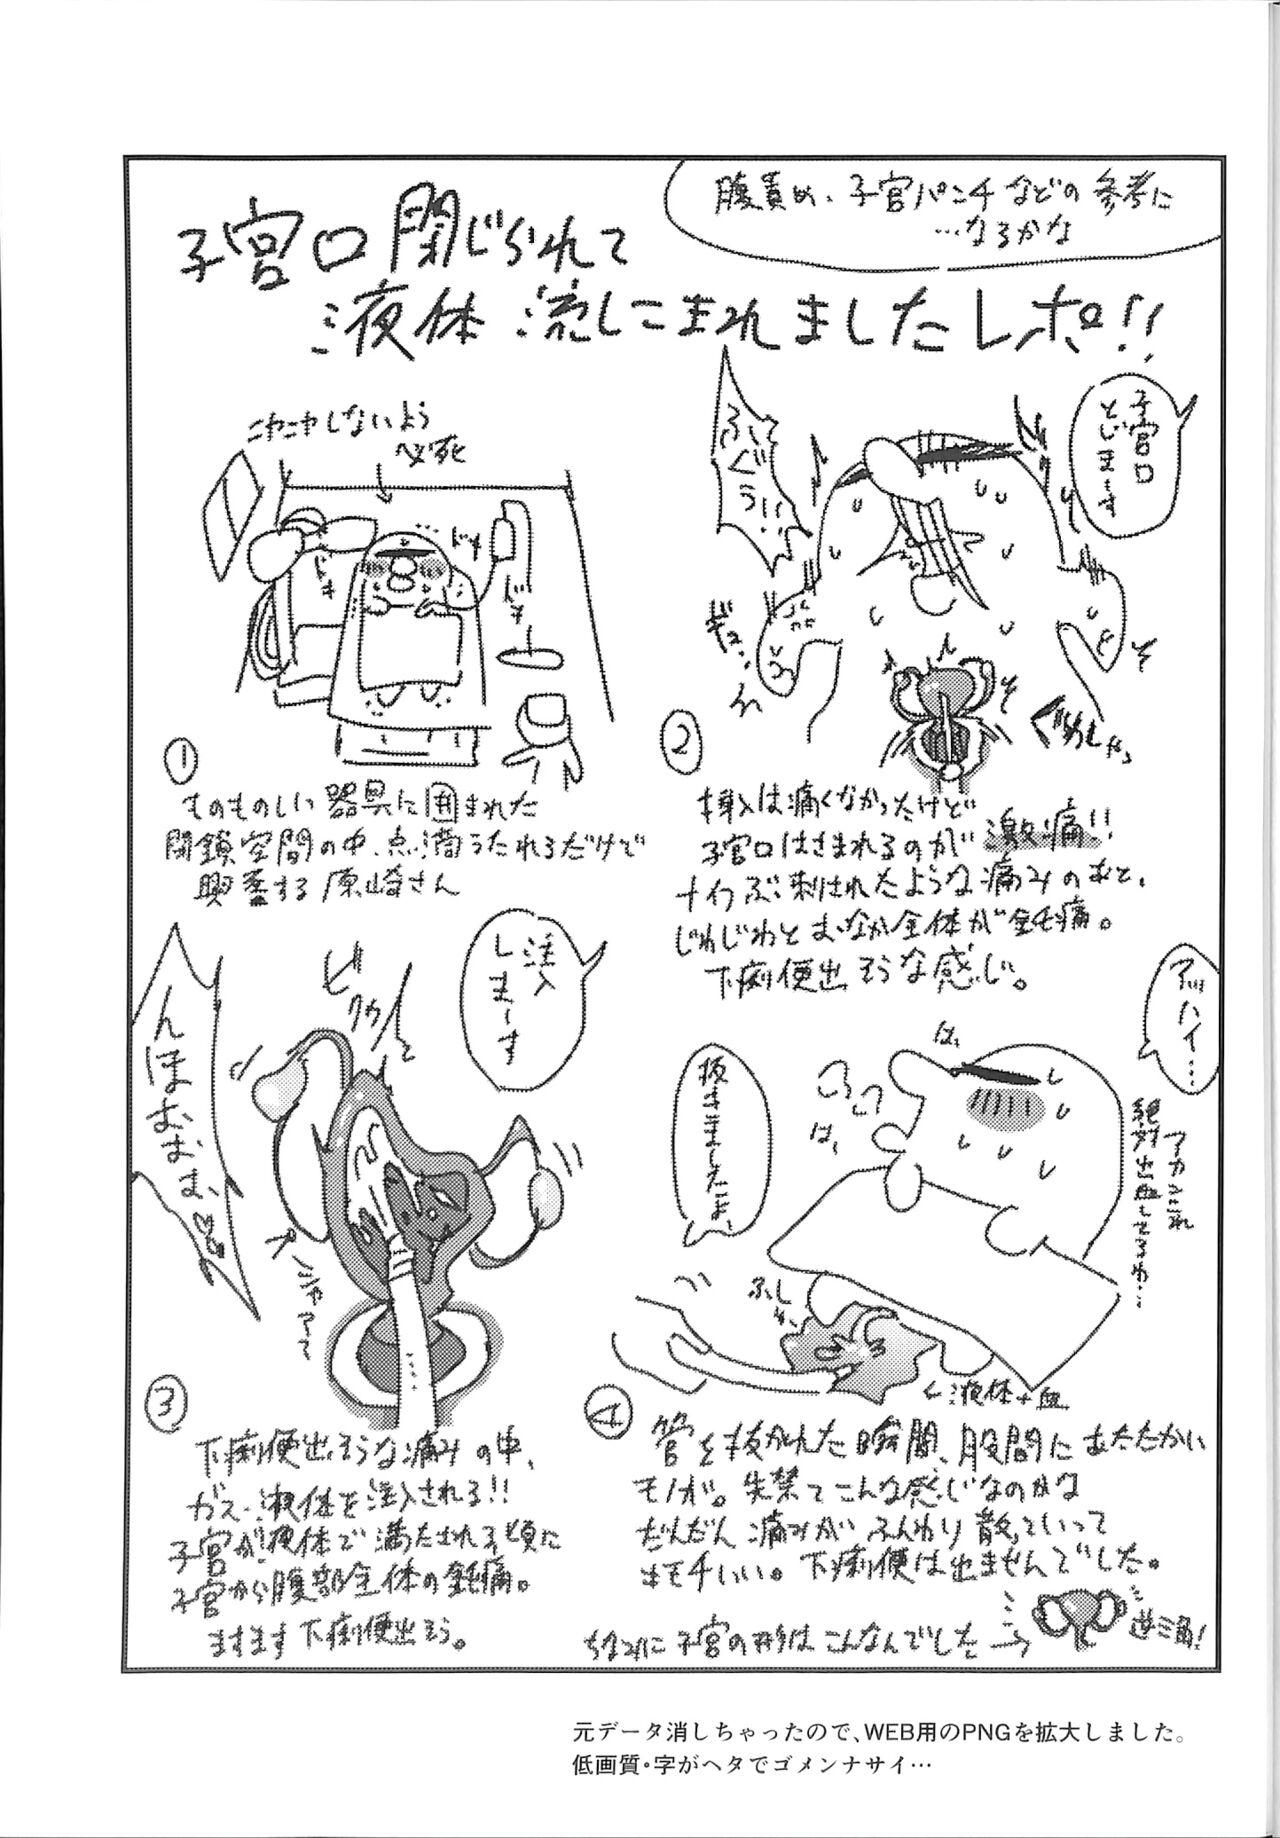 腹責め、子宮パンチなどの参考に
…なるかな
子宮口閉じられて
液体流しこまれましたレポ!!
ニヤニヤしないよう
必死
ドキ
ドキ
ドキ
①
ものものしい器具に囲まれた
閉鎖空間の中、点滴うたれるだけで
興奮する原崎さん
子宮口
とじま〜す
ふぐうぅ!!
ギュ…
②
挿入は痛くなかったけど
子宮口はさまれるのが激痛!!
ナイフぶっ刺されたような痛みのあと、
じわじわとおなか全体が鈍痛。
下痢便出そうな感じ。
注入
しま〜す
んほおおお
ビクウッ
プシャアァ
③
下痢便出そうな痛みの中、
ガス・液体を注入される!!
子宮が液体で満たされる頃に
子宮から腹部全体の鈍痛。
ますます下痢便出そう。
アッハイ…
アカンこれ
絶対出血してるわ…
抜きましたよ、
はっ
はっ
←液体+血
④
管を抜かれた瞬間、股間にあたたかい
モノが。失禁てこんな感じなのかな
だんだん痛みがふんわり散っていって
キモチいい。下痢便は出ませんでした。
ちなみに子宮の形はこんなんでした→
逆三角!
元データ消しちゃったので、WEB用のPNGを拡大しました。
低画質・字がヘタでゴメンナサイ…